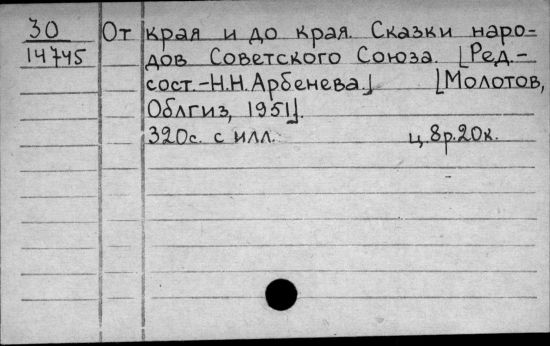 30 От края и до края. Сказки наро-
14745 дов Советского Союза. [Ред.-
сост.-Н.Н.Арбенева.] [Молотов,
Облгиз, 1951].
320с. с илл. ц.8р.20к.